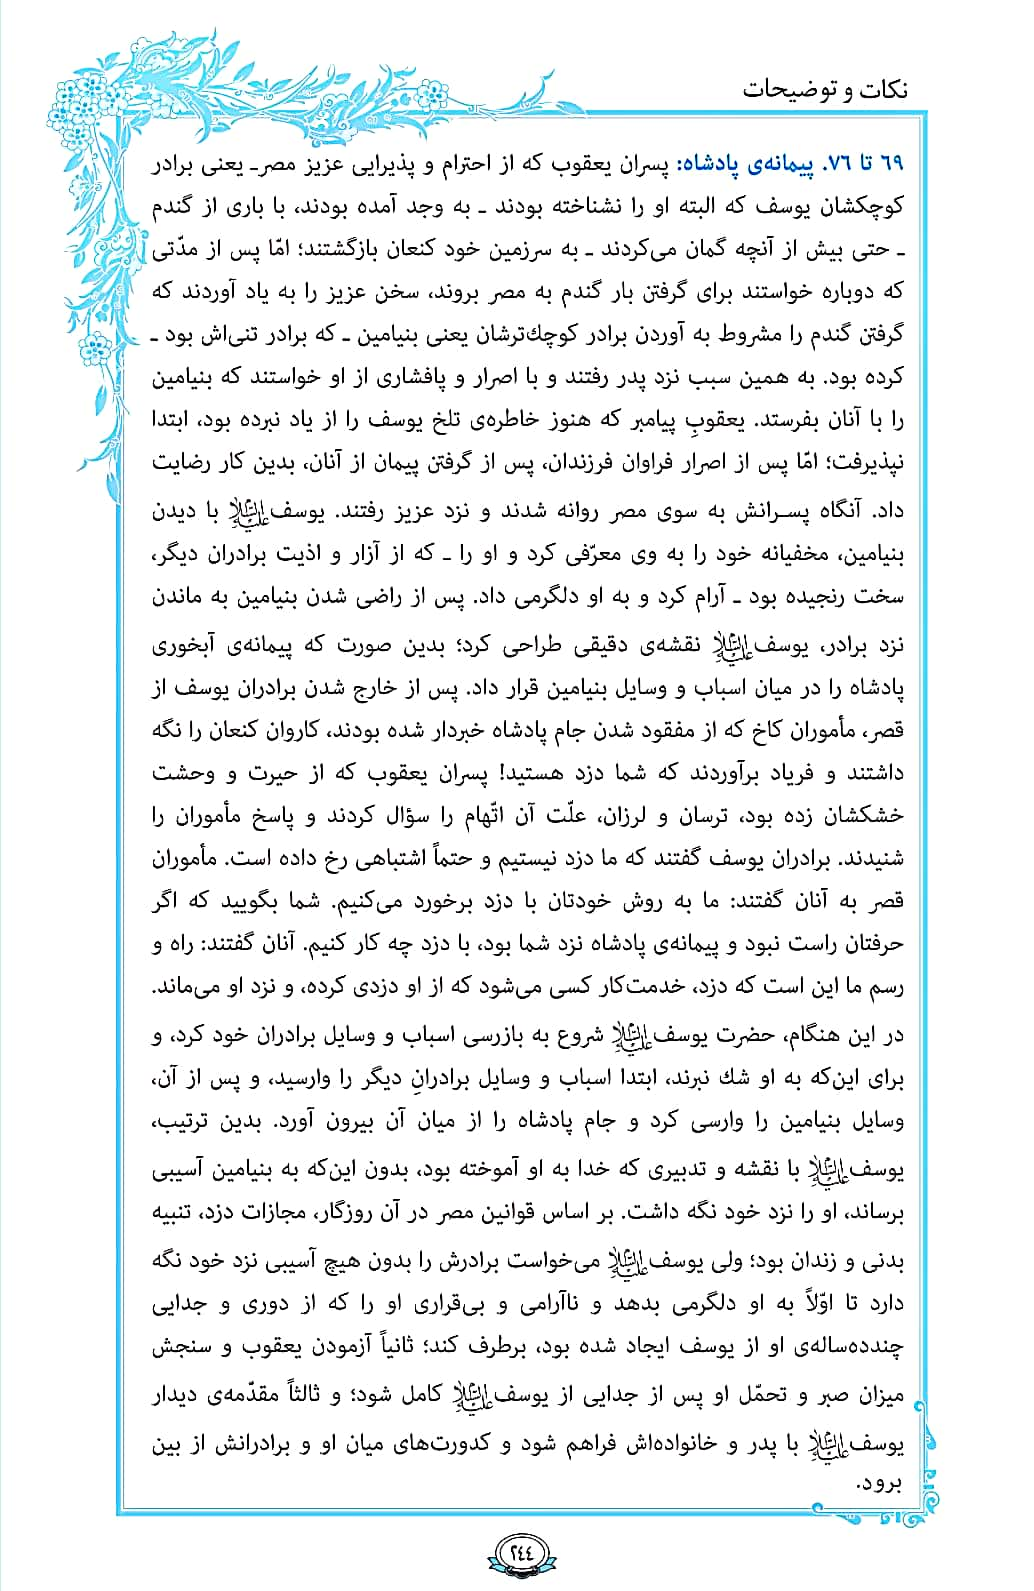 نکات و توضیحات
۶۹ تا ۷۶. پیمانه‌ی پادشاه: پسران یعقوب که از احترام و پذیرایی عزیز مصرـ یعنی برادر
کوچکشان یوسف که البته او را نشناخته بودند ـ به وجد آمده بودند، با باری از گندم
ـ حتی بیش از آنچه گمان می‌کردند ـ به سرزمین خود کنعان بازگشتند؛ امّا پس از مدّتی
که دوباره خواستند برای گرفتن بار گندم به مصر بروند، سخن عزیز را به یاد آوردند که
گرفتن گندم را مشروط به آوردن برادر کوچك‌ترشان یعنی بنیامین ـ که برادر تنی‌اش بود ـ
کرده بود. به همین سبب نزد پدر رفتند و با اصرار و پافشاری از او خواستند که بنیامین
را با آنان بفرستد. یعقوبِ پیامبر که هنوز خاطره‌ی تلخ یوسف را از یاد نبرده بود، ابتدا
نپذیرفت؛ امّا پس از اصرار فراوان فرزندان، پس از گرفتن پیمان از آنان، بدین کار رضایت
داد. آنگاه پسرانش به سوی مصر روانه شدند و نزد عزیز رفتند. یوسف علیه‌السلام با دیدن
بنیامین، مخفیانه خود را به وی معرّفی کرد و او را ـ که از آزار و اذیت برادران دیگر،
سخت رنجیده بود ـ آرام کرد و به او دلگرمی داد. پس از راضی شدن بنیامین به ماندن
نزد برادر، یوسف علیه‌السلام نقشه‌ی دقیقی طراحی کرد؛ بدین صورت که پیمانه‌ی آبخوری
پادشاه را در میان اسباب و وسایل بنیامین قرار داد. پس از خارج شدن برادران یوسف از
قصر، مأموران کاخ که از مفقود شدن جام پادشاه خبردار شده بودند، کاروان کنعان را نگه
داشتند و فریاد برآوردند که شما دزد هستید! پسران یعقوب که از حیرت و وحشت
خشکشان زده بود، ترسان و لرزان، علّت آن اتّهام را سؤال کردند و پاسخ مأموران را
شنیدند. برادران یوسف گفتند که ما دزد نیستیم و حتماً اشتباهی رخ داده است. مأموران
قصر به آنان گفتند: ما به روش خودتان با دزد برخورد می‌کنیم. شما بگویید که اگر
حرفتان راست نبود و پیمانه‌ی پادشاه نزد شما بود، با دزد چه کار کنیم. آنان گفتند: راه و
رسم ما این است که دزد، خدمت‌کار کسی می‌شود که از او دزدی کرده، و نزد او می‌ماند.
در این هنگام، حضرت یوسف علیه‌السلام شروع به بازرسی اسباب و وسایل برادران خود کرد، و
برای این‌که به او شك نبرند، ابتدا اسباب و وسایل برادرانِ دیگر را وارسید، و پس از آن،
وسایل بنیامین را وارسی کرد و جام پادشاه را از میان آن بیرون آورد. بدین ترتیب،
یوسف علیه‌السلام با نقشه و تدبیری که خدا به او آموخته بود، بدون این‌که به بنیامین آسیبی
برساند، او را نزد خود نگه داشت. بر اساس قوانین مصر در آن روزگار، مجازات دزد، تنبیه
بدنی و زندان بود؛ ولی یوسف علیه‌السلام می‌خواست برادرش را بدون هیچ آسیبی نزد خود نگه
دارد تا اوّلاً به او دلگرمی بدهد و ناآرامی و بی‌قراری او را که از دوری و جدایی
چندده‌ساله‌ی او از یوسف ایجاد شده بود، برطرف کند؛ ثانیاً آزمودن یعقوب و سنجش
میزان صبر و تحمّل او پس از جدایی از یوسف علیه‌السلام کامل شود؛ و ثالثاً مقدّمه‌ی دیدار
یوسف علیه‌السلام با پدر و خانواده‌اش فراهم شود و کدورت‌های میان او و برادرانش از بین
برود.
۲۴۴